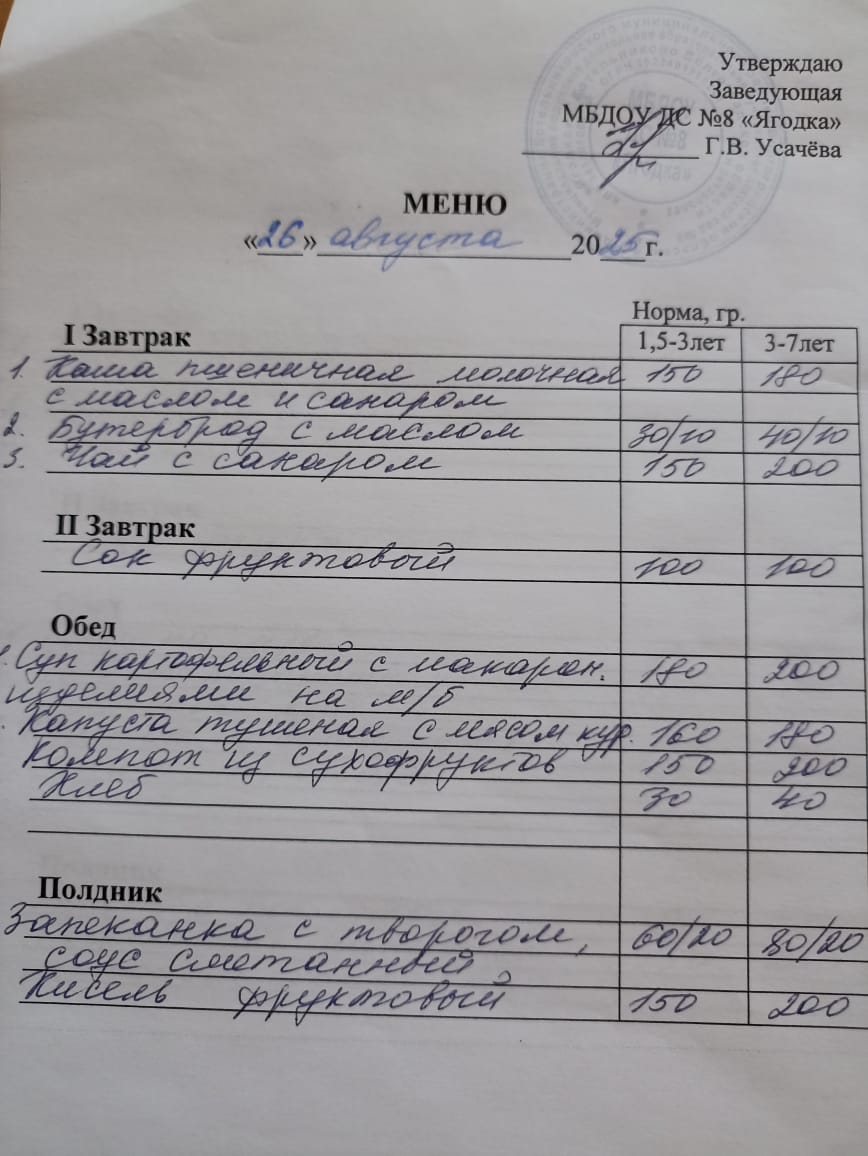 Утверждаю
Заведующая
МБДОУ ДС №8 «Ягодка»
Г.В. Усачёва
МЕНЮ
«26» августа 2025 г.
Норма, гр.
I Завтрак 1,5-3лет 3-7лет
1. Каша пшеничная молочная 150 180
с маслом и сахаром
2. Бутерброд с маслом 30/10 40/10
3. Чай с сахаром 150 200
II Завтрак
Сок фруктовый 100 100
Обед
1. Суп картофельный с макарон. 180 200
изделиями на м/б
Капуста тушеная с мясом кур. 160 180
Компот из сухофруктов 150 200
Хлеб 30 40
Полдник
Запеканка с творогом, 60/20 80/20
соус сметанный
Кисель фруктовый 150 200